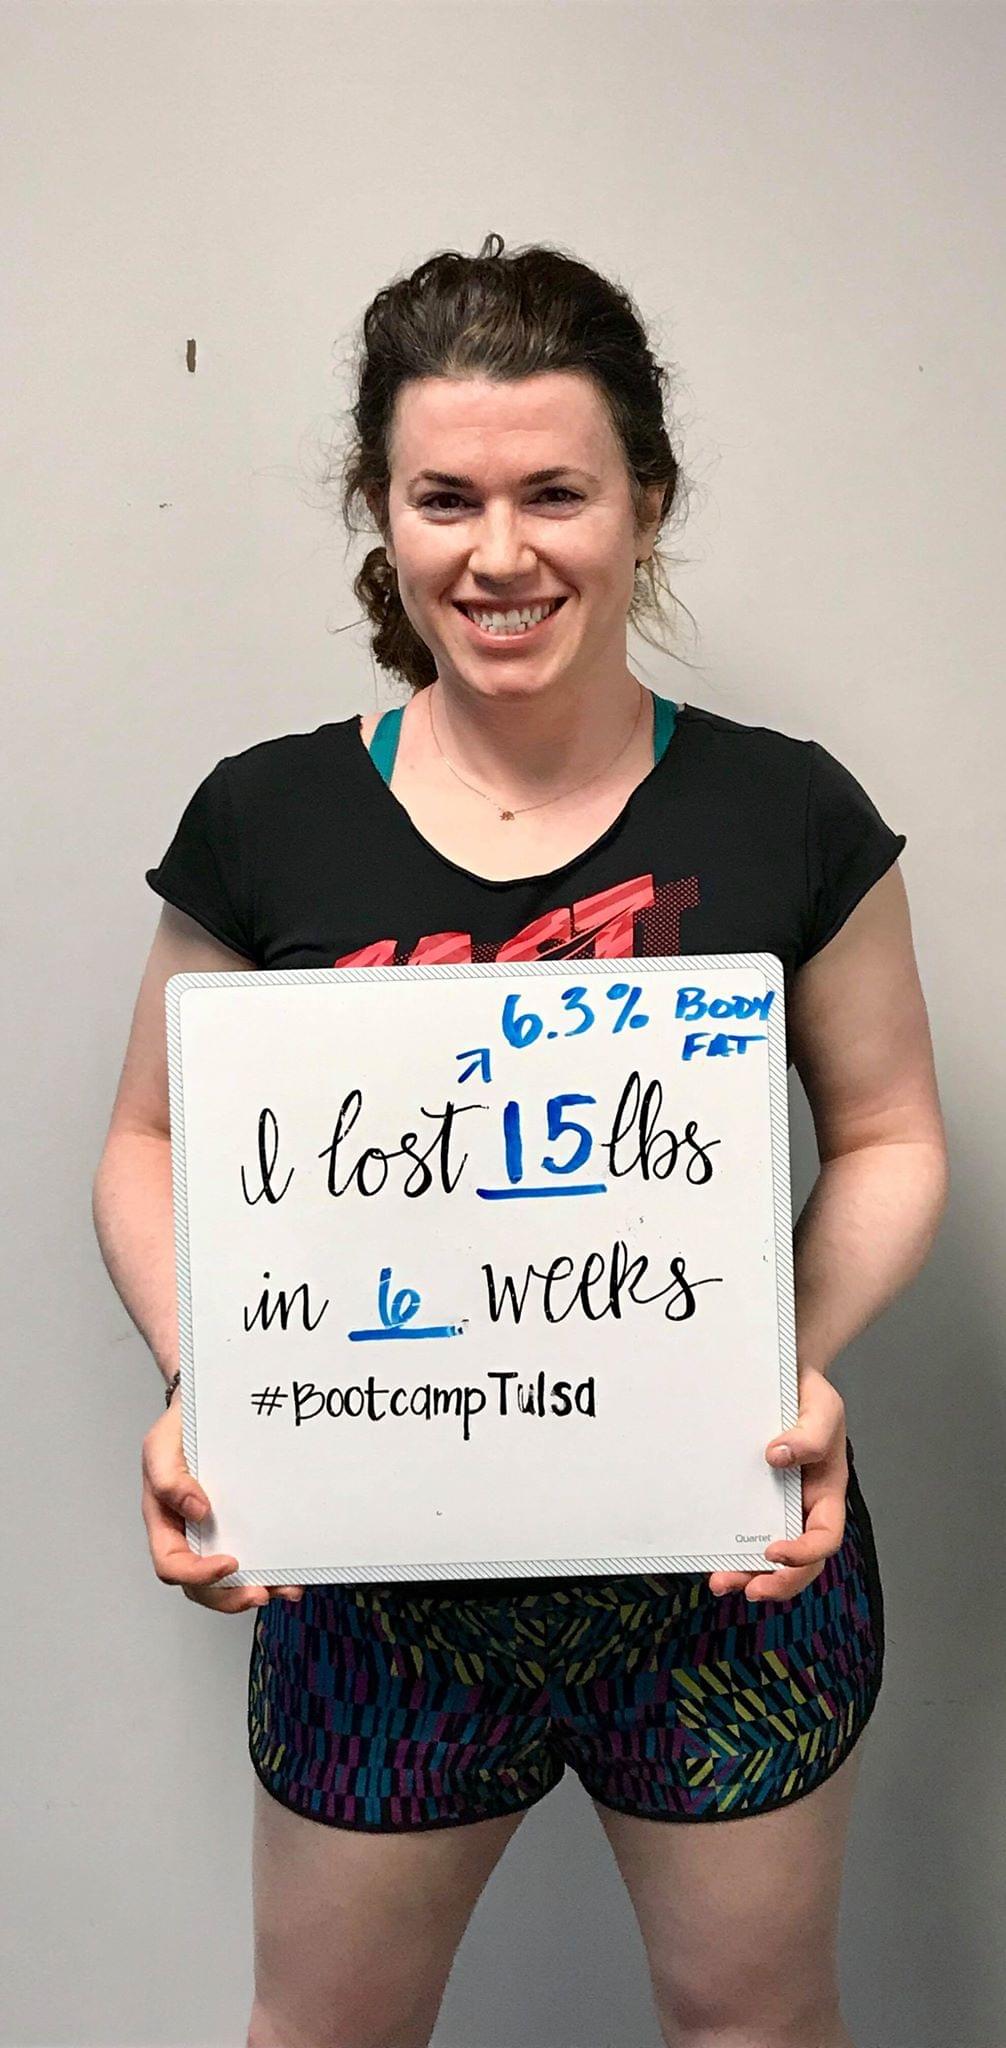 6.3% BODY
FAT
I lost 15 lbs
in 6 weeks
#BootcampTulsa
Quartet